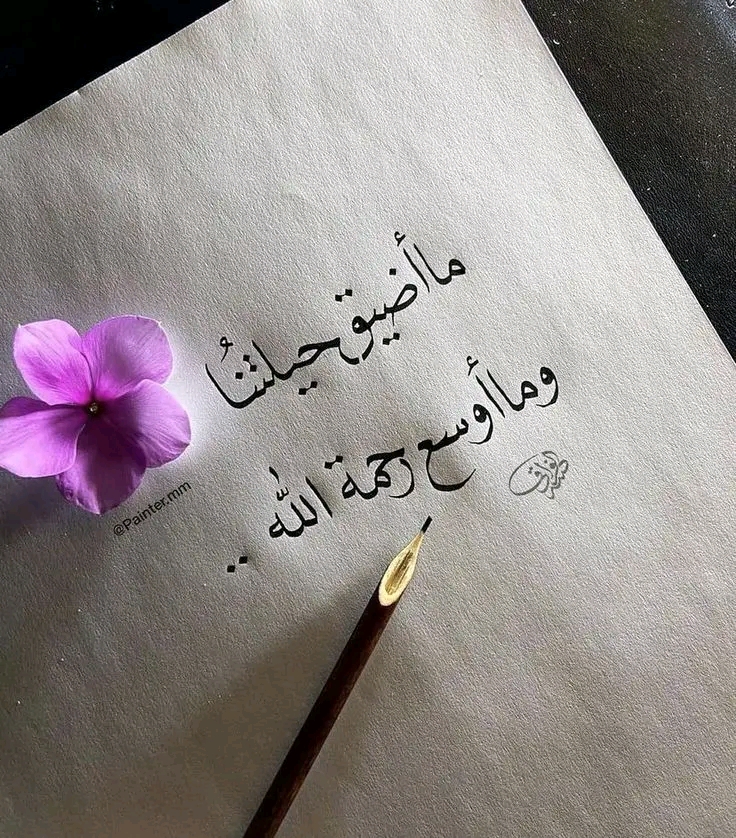 ما أضيق حيلتنُا
وما أوسع رحمة اللّٰه ..
@Painter.mm